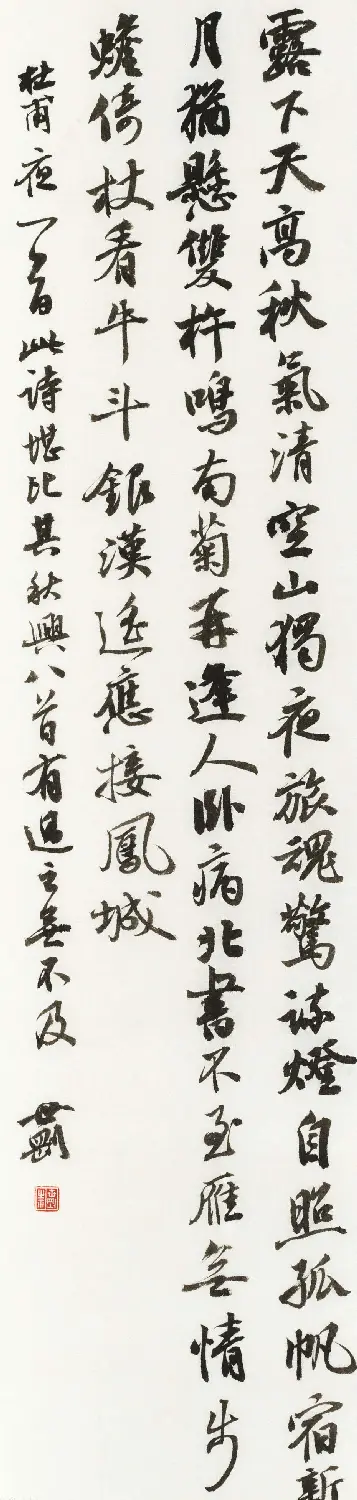 露下天高秋氣清空山獨夜旅魂驚疎燈自照孤帆宿新
月猶懸雙杵鳴南菊再逢人卧病北書不至雁無情步
蟾倚杖看牛斗銀漢遥應接鳳城
杜甫夜一首此詩堪比其秋興八首有過之無不及 世剛